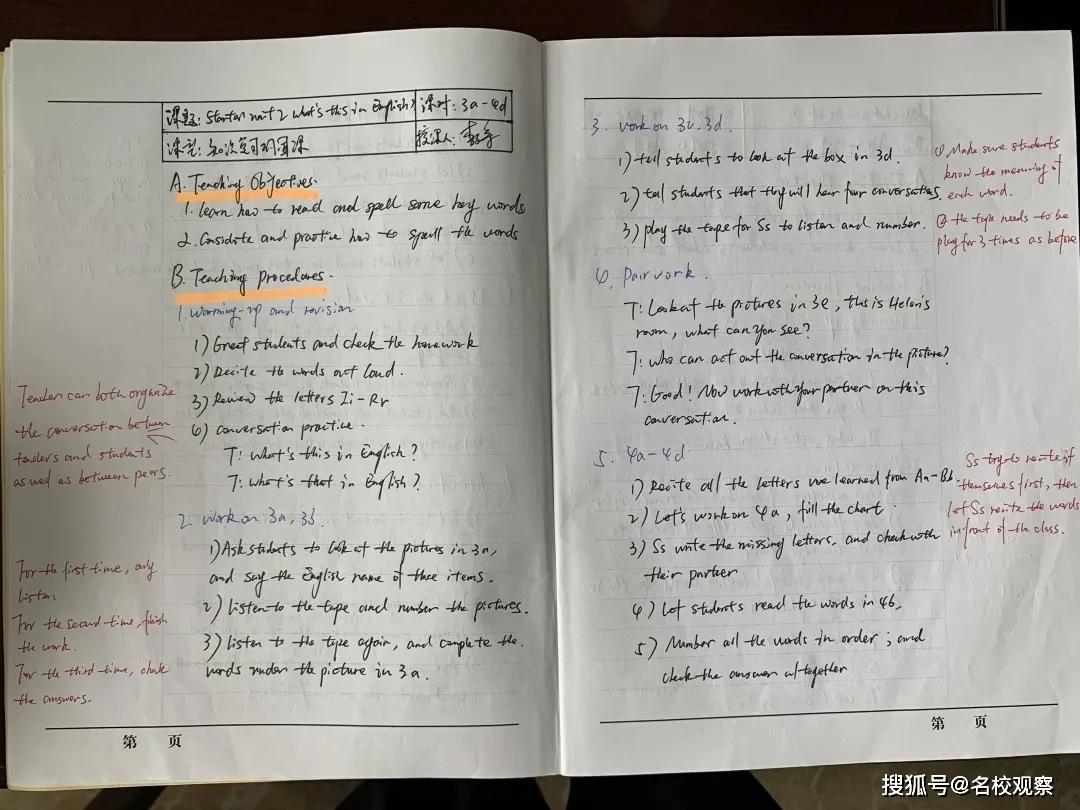 课题: Starter unit 2 What's this in English? 课时: 3a-4d
课型: 知识复习巩固课 授课人:
A. Teaching Objectives.
1. learn how to read and spell some key words
2. Considate and practice how to spell the words
B. Teaching procedures.
1. Worming-up and revision
1) Great students and check the homework
2) Recite the words out loud.
3) Review the letters Ii-Rr
4) conversation practice.
T: what's this in English?
T: what's that in English?
2. Work on 3a, 3b
1) Ask students to look at the pictures in 3a,
and say the English name of these items.
2) listen to the tape and number the pictures.
3) listen to the tape again, and complete the
words under the picture in 3a.
Teacher can both organize
the conversation between
teachers and students
as well as between peers.
For the first time, only
listen
For the second time, finish
the work.
For the third time, check
the answers.
第 页
3. work on 3c, 3d.
1) tell students to look at the box in 3d.
2) tell students that they will hear four conversations.
3) play the tape for Ss to listen and number.
4. Pair work.
T: Look at the pictures in 3e, this is Helen's
room, what can you see?
T: who can act out the conversation in the picture?
T: Good! Now work with your partner on this
conversation.
5. 4a-4d
1) Recite all the letters we learned from Aa-
2) Let's work on 4a, fill the chart
3) Ss write the missing letters, and check with
their partner
4) Let students read the words in 4b,
5) Number all the words in order; and
check the answer altogether
① Make sure students
know the meaning of
each word.
② the tape needs to be
play for 3 times as before
Ss try to recite it
themselves first, then
let Ss recite the words
in front of the class.
第 页
搜狐号@名校观察